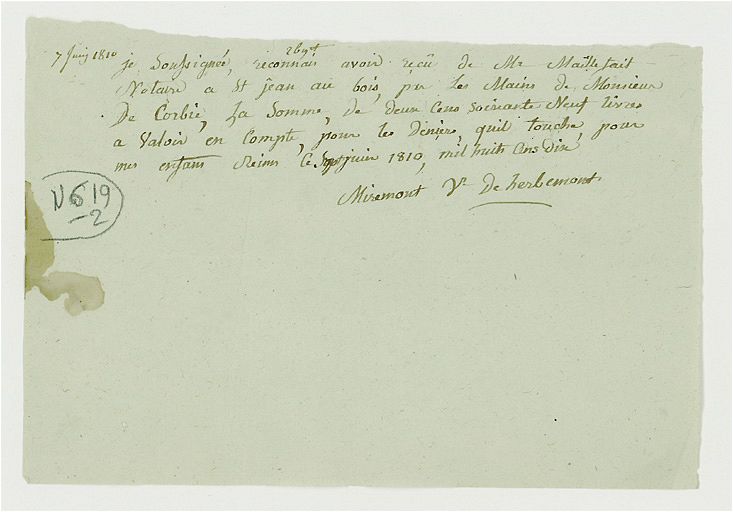 7 Juin 1810
269#
je Soussignée, reconnais avoir reçû de Mr Maillefait
Notaire a St jean au bois, par les Mains de Monsieur
De Corbie, La Somme, de deux Cens Soixante Neuf livres
a Valoir en Compte, pour les deniers, quil touche, pour
mes enfans Reims Ce Sept juin 1810, mil huits Cens dix
Miremont Ve De herbemont
N 619
-2